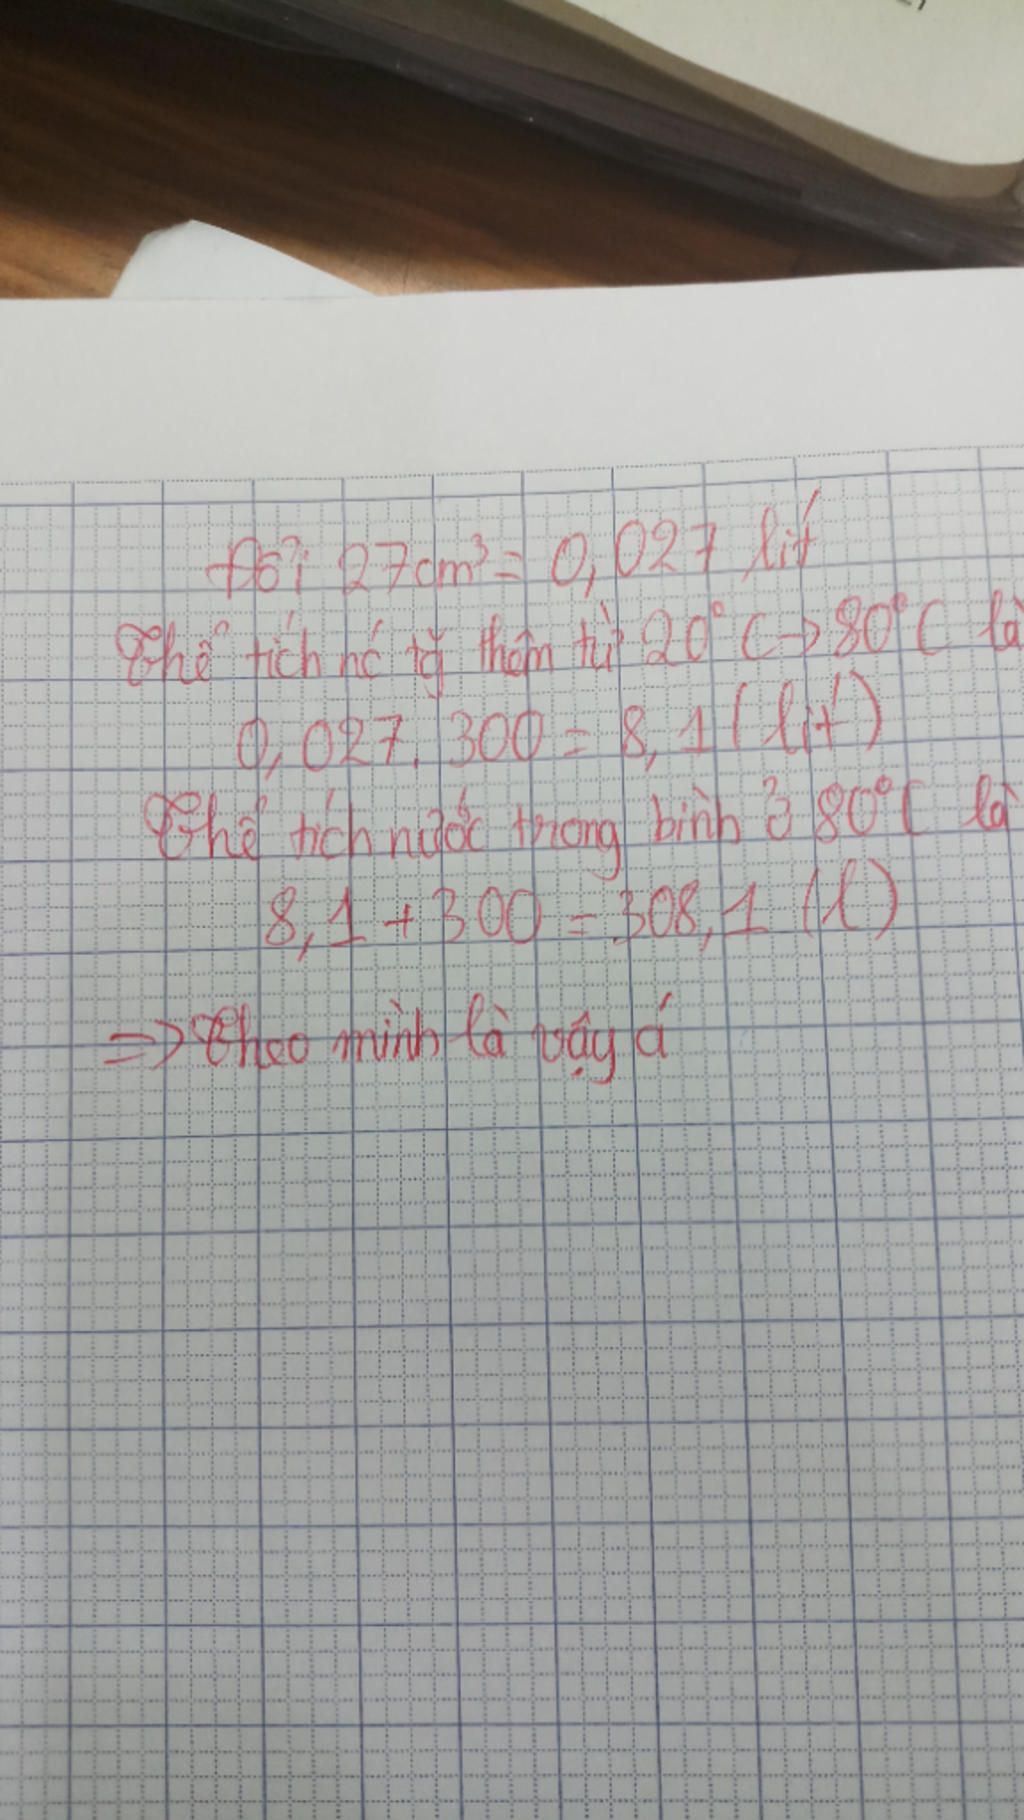 Đổi 27cm³ = 0,027 lít
Thể tích nc tg thêm từ 20°C → 80°C là
0,027. 300 = 8,1 (lít)
Thể tích nước trong bình ở 80°C là
8,1 + 300 = 308,1 (l)
=> Theo mình là vậy á